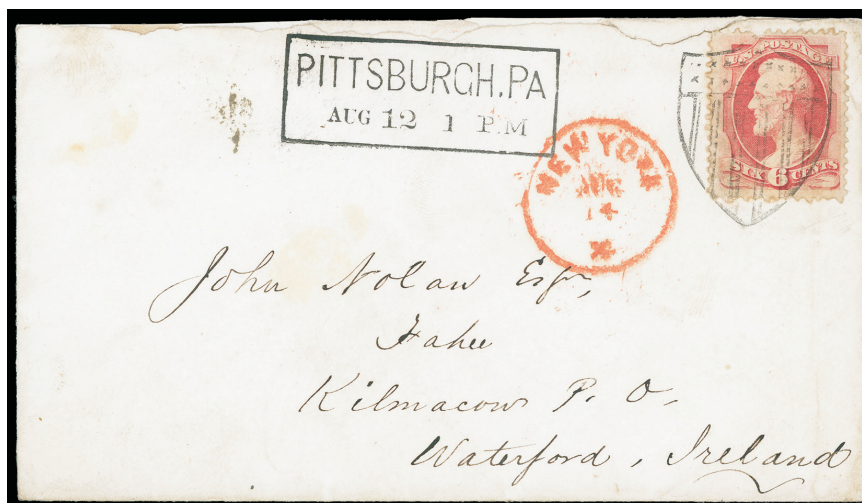 PITTSBURGH.PA
AUG 12 1 P.M
NEW YORK
AUG
14
U.S. POSTAGE
SIX 6 CENTS
John Nolan Esqr,
Fahee
Kilmacow P. O.
Waterford, Ireland